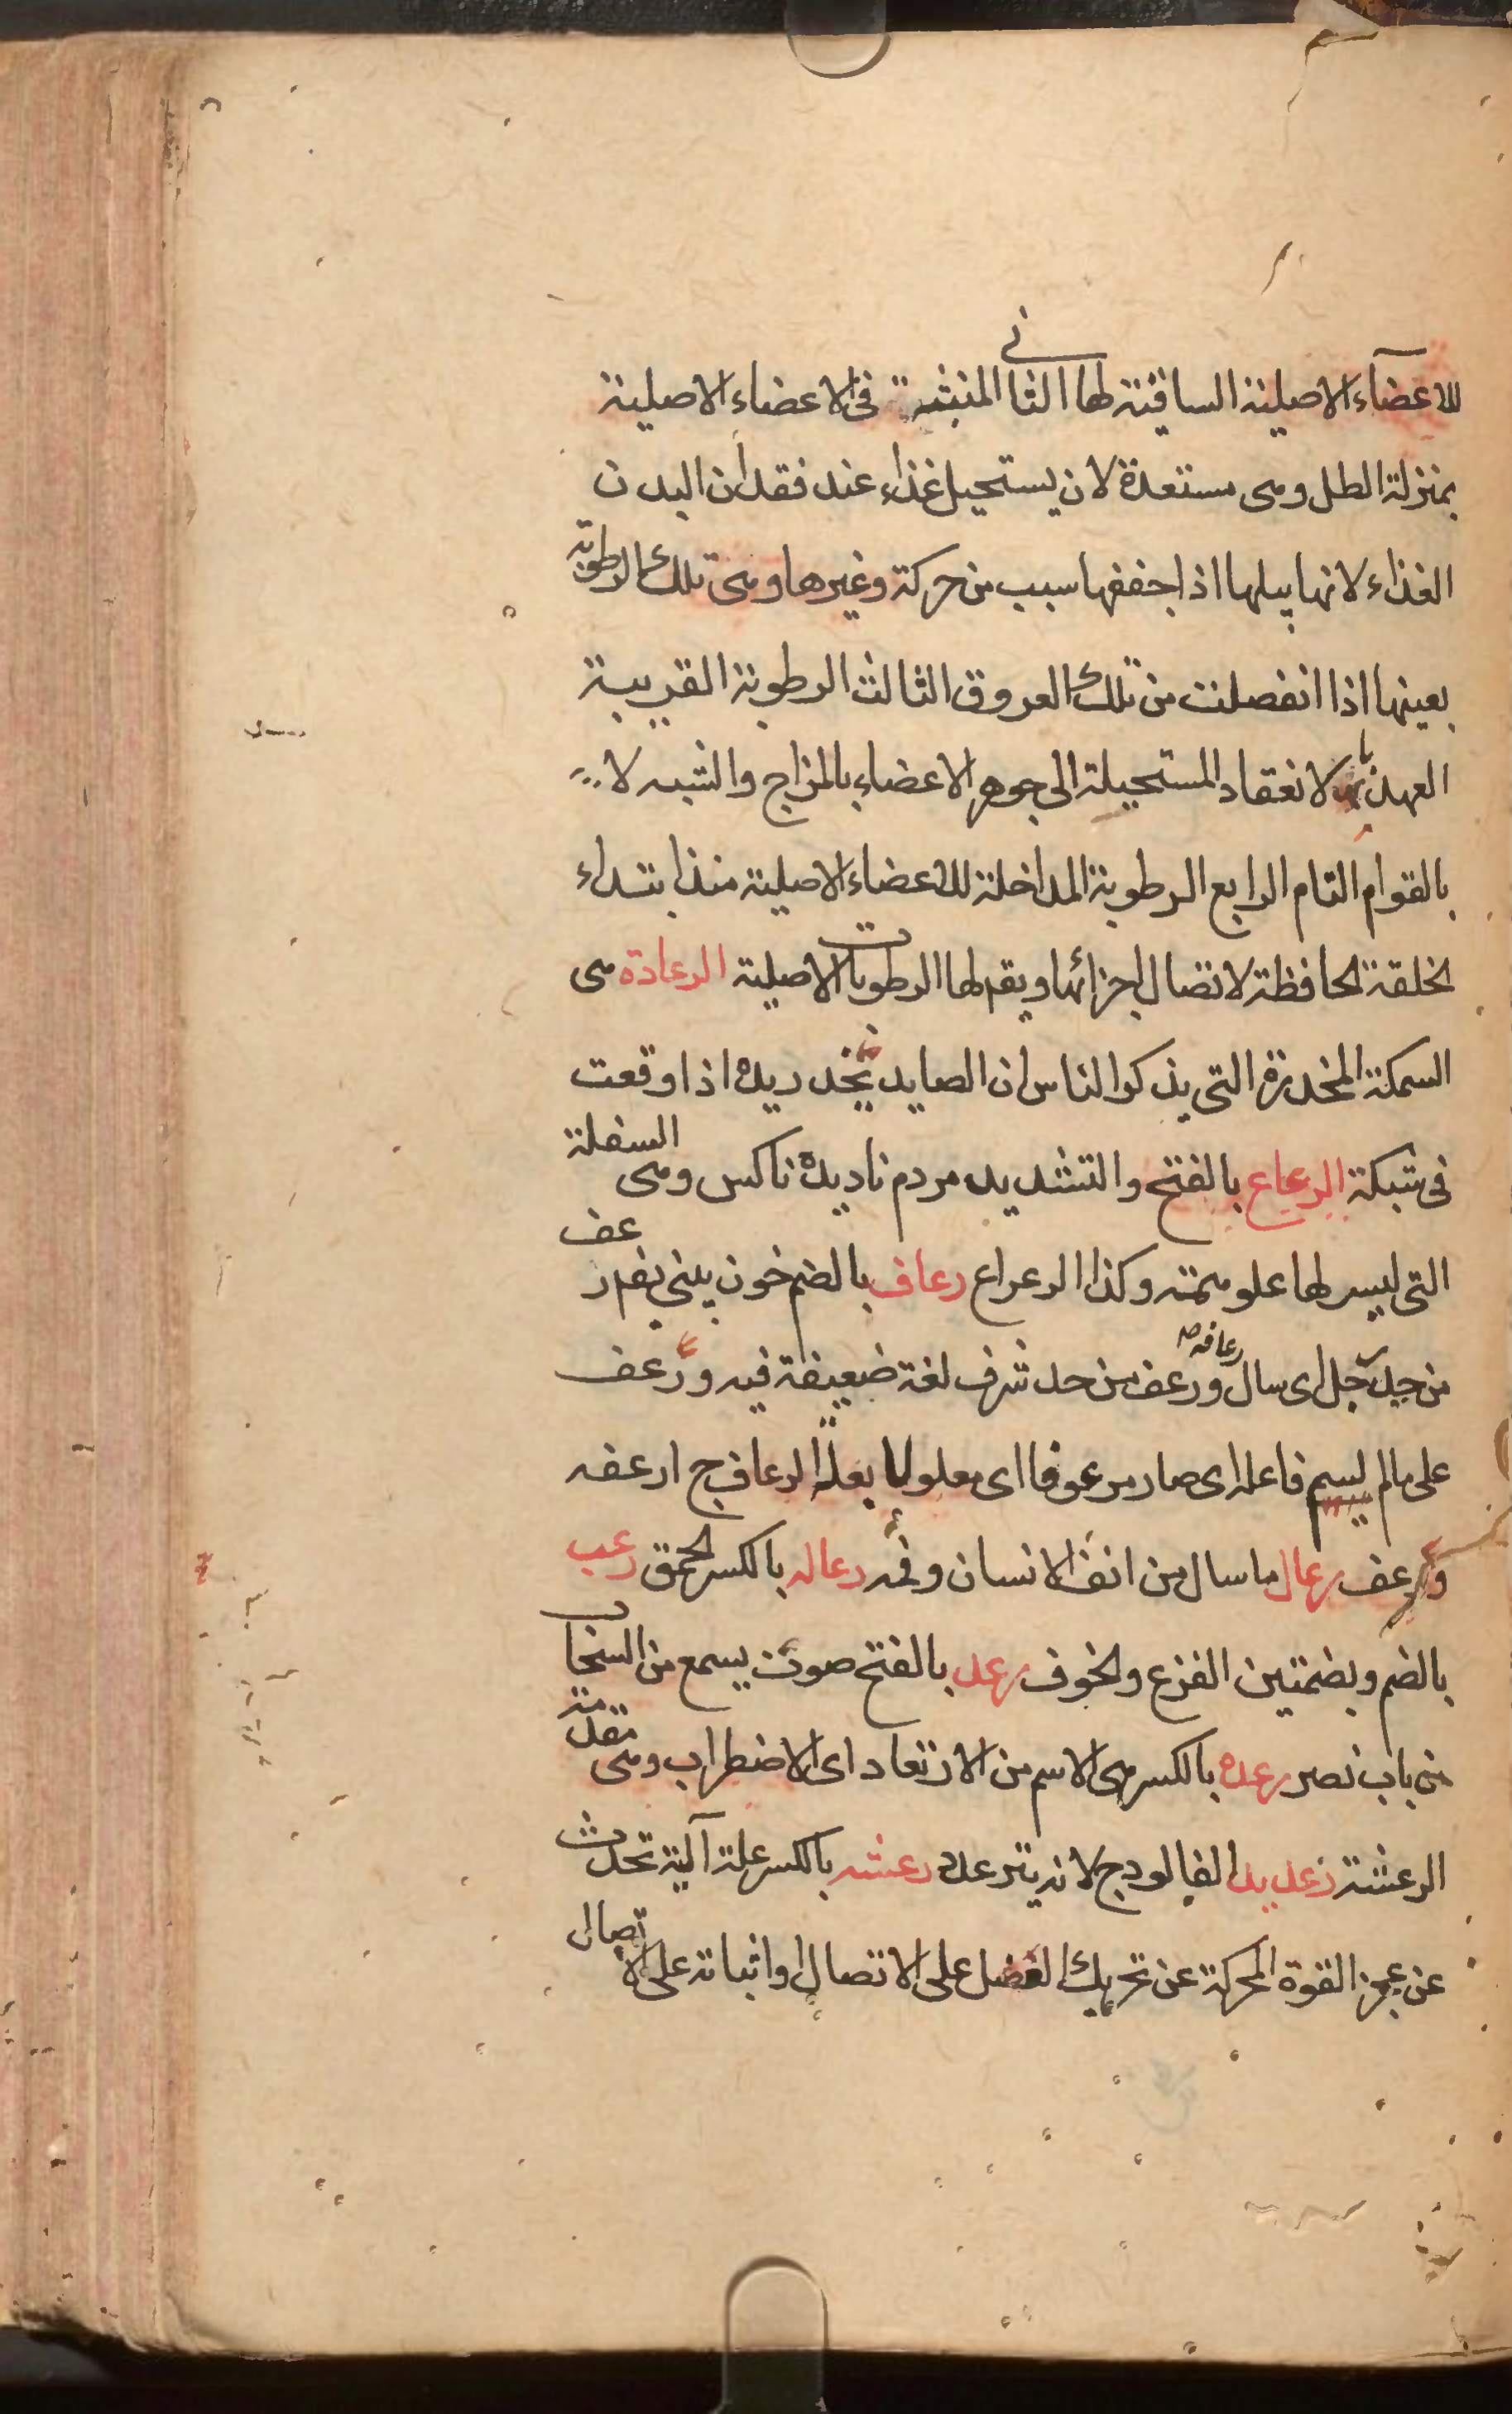 للاعضآء الاصلية الساقية لها الثانى المنبثة فى الاعضاء الاصلية
بمنزلة الطل وهى مستعدة لان يستحيل غذاء عند فقدان البدن
الغذاء لانها يبلها اذا جففها سبب من حركة وغيرها وهى تلك الرطوبة
بعينها اذا انفصلت من تلك العروق الثالث الرطوبة القريبة
العهد با لانعقاد المستحيلة الى جوهر الاعضاء بالمزاج والشبه لا
بالقوام التام الرابع الرطوبة المداخلة للاعضاء الاصلية منذ ابتداء
لخلقة لحافظة لاتصال اجزائها ويقم لها الرطوبات الاصلية الرعادة هى
السمكة المخدرة التى يذكوا الناس ان الصايد يخدر يده اذا وقعت
فى شبكة الرعاع بالفتح والتشديد مردم ناديده ناكس وهى السفلة
التى ليس لها علو همته وكذا الرعراع رعاف بالضم خون بينى يقم رعف
من حد جل اى سال رعافه ورعف من حد شرف لغة ضعيفة فيه ورعف
على مالم ليسم فاعله اى صار مرعوفا اى معلولا بعلة الرعاف ج ارعفه
ورعف رعال ما سال من انف الانسان وفمه رعاله بالكسر لحمق رعب
بالضم وبضمتين الفزع ولخوف رعد بالفتح صوت يسمع من السحاب
من باب نصر رعده بالكسر هى الاسم من الارتعاد اى الاضطراب وهى مقدمة
الرعشة رعديد الفالودج لانه يترعدد رعشه بالكسر علة آلية تحدث
عن عجز القوة المحركة عن تحريك العضل على الاتصال او اثباته على الاتصال